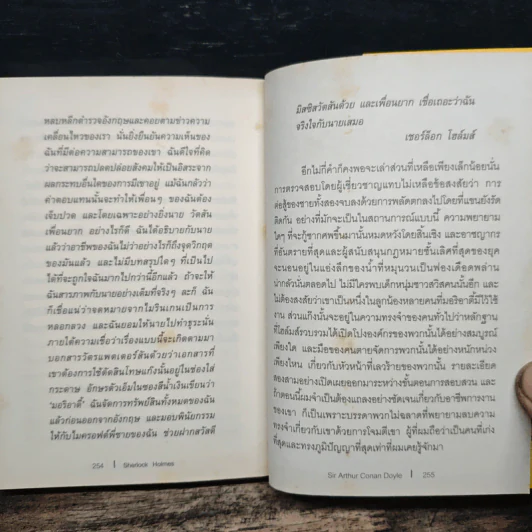 หลบหลีกตำรวจอังกฤษและคอยตามข่าวความ
เคลื่อนไหวของเรา นั่นยิ่งยืนยันความเห็นของ
ฉันที่มีต่อความสามารถของเขา ฉันดีใจที่คิด
ว่าจะสามารถปลดปล่อยสังคมให้เป็นอิสระจาก
ผลกระทบอื่นใดของการมีเขาอยู่ แม้ฉันกลัวว่า
ค่าตอบแทนนั้นจะทำให้เพื่อนๆ ของฉันต้อง
เจ็บปวด และโดยเฉพาะอย่างยิ่งนาย วัตสัน
เพื่อนยาก อย่างไรก็ดี ฉันได้อธิบายกับนาย
แล้วว่าอาชีพของฉันไม่ว่าอย่างไรก็ถึงจุดวิกฤต
ของมันแล้ว และไม่มีบทสรุปใดๆ ที่เป็นไป
ได้ที่จะถูกใจฉันมากไปกว่านี้อีกแล้ว ถ้าจะให้
ฉันสารภาพกับนายอย่างเต็มที่จริงๆ ละก็ ฉัน
ก็เชื่อแน่ว่าจดหมายจากไมรินเกนเป็นการ
หลอกลวง และฉันยอมให้นายไปทำธุระนั้น
ภายใต้ความเชื่อว่าเรื่องแบบนี้จะเกิดตามมา
บอกสารวัตรแพตเตอร์สันด้วยว่าเอกสารที่
เขาต้องการใช้ตัดสินโทษแก๊งนั้นอยู่ในช่องใส่
กระดาษ อักษรตัวเอ็มในซองสีน้ำเงินเขียนว่า
“มอริอาตี้” ฉันจัดการทรัพย์สินทั้งหมดของฉัน
แล้วก่อนออกจากอังกฤษ และมอบพินัยกรรม
ให้กับไมครอฟต์พี่ชายของฉัน ช่วยฝากสวัสดี
254 | Sherlock Holmes
มิสซิสวัตสันด้วย และเพื่อนยาก เชื่อเถอะว่าฉัน
จริงใจกับนายเสมอ
เชอร์ล็อก โฮล์มส์
อีกไม่กี่คำก็คงพอจะเล่าส่วนที่เหลือเพียงเล็กน้อยนั่น
การตรวจสอบโดยผู้เชี่ยวชาญแทบไม่เหลือข้อสงสัยว่า การ
ต่อสู้ของชายทั้งสองจบลงด้วยการพลัดตกลงไปโดยที่แขนยังรัด
ติดกัน อย่างที่มักจะเป็นในสถานการณ์แบบนี้ ความพยายาม
ใดๆ ที่จะกู้ซากศพขึ้นมานั้นหมดหวังโดยสิ้นเชิง และอาชญากร
ที่อันตรายที่สุดและผู้สนับสนุนกฎหมายชั้นเลิศที่สุดของยุค
จะนอนอยู่ในแอ่งลึกของน้ำที่หมุนวนเป็นฟองเดือดพล่าน
น่ากลัวนั่นตลอดไป ไม่มีใครพบเด็กหนุ่มชาวสวิสคนนั้นอีก และ
ไม่ต้องสงสัยว่าเขาเป็นหนึ่งในลูกน้องหลายคนที่มอริอาตี้มีไว้ใช้
งาน ส่วนแก๊งนั้นจะอยู่ในความทรงจำของคนทั่วไปว่าหลักฐาน
ที่โฮล์มส์รวบรวมได้เปิดโปงองค์กรของพวกนั้นได้อย่างสมบูรณ์
เพียงใด และมือของคนตายจัดการพวกนั้นได้อย่างหนักหน่วง
เพียงไหน เกี่ยวกับหัวหน้าที่เลวร้ายของพวกนั้น รายละเอียด
สองสามอย่างเปิดเผยออกมาระหว่างขั้นตอนการสอบสวน และ
ถ้าตอนนี้ผมจำเป็นต้องแถลงอย่างชัดเจนเกี่ยวกับอาชีพการงาน
ของเขา ก็เป็นเพราะบรรดาพวกไม่ฉลาดที่พยายามลบความ
ทรงจำเกี่ยวกับเขาด้วยการโจมตีเขา ผู้ที่ผมถือว่าเป็นคนที่เก่ง
ที่สุดและทรงภูมิปัญญาที่สุดเท่าที่ผมเคยรู้จักมา
Sir Arthur Conan Doyle | 255